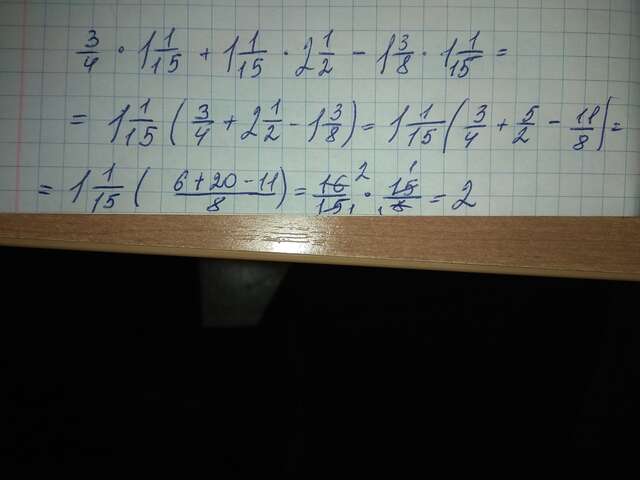 3/4 · 1 1/15 + 1 1/15 · 2 1/2 - 1 3/8 · 1 1/15 =
= 1 1/15 ( 3/4 + 2 1/2 - 1 3/8 ) = 1 1/15 ( 3/4 + 5/2 - 11/8 ) =
= 1 1/15 ( (6+20-11)/8 ) = 16 2/15 1 · 15 1/8 1 = 2